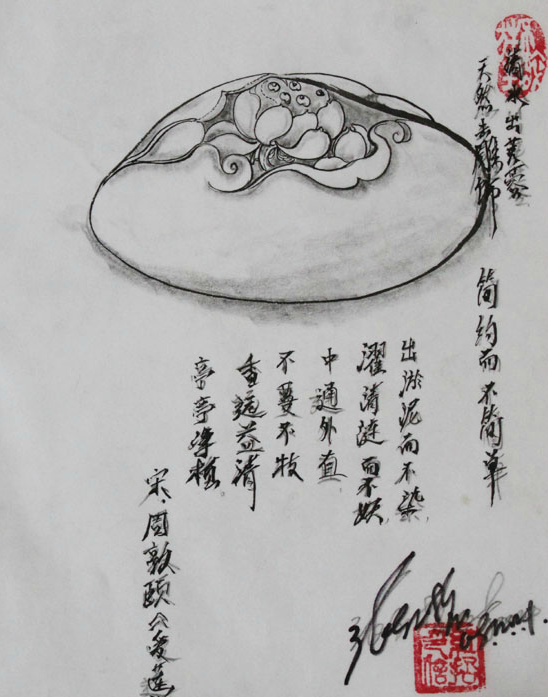 清水出芙蓉
天然去雕饰
简约而不简单
出淤泥而不染,
濯清涟而不妖,
中通外直,
不蔓不枝
香远益清
亭亭净植.
宋、周敦颐《爱莲